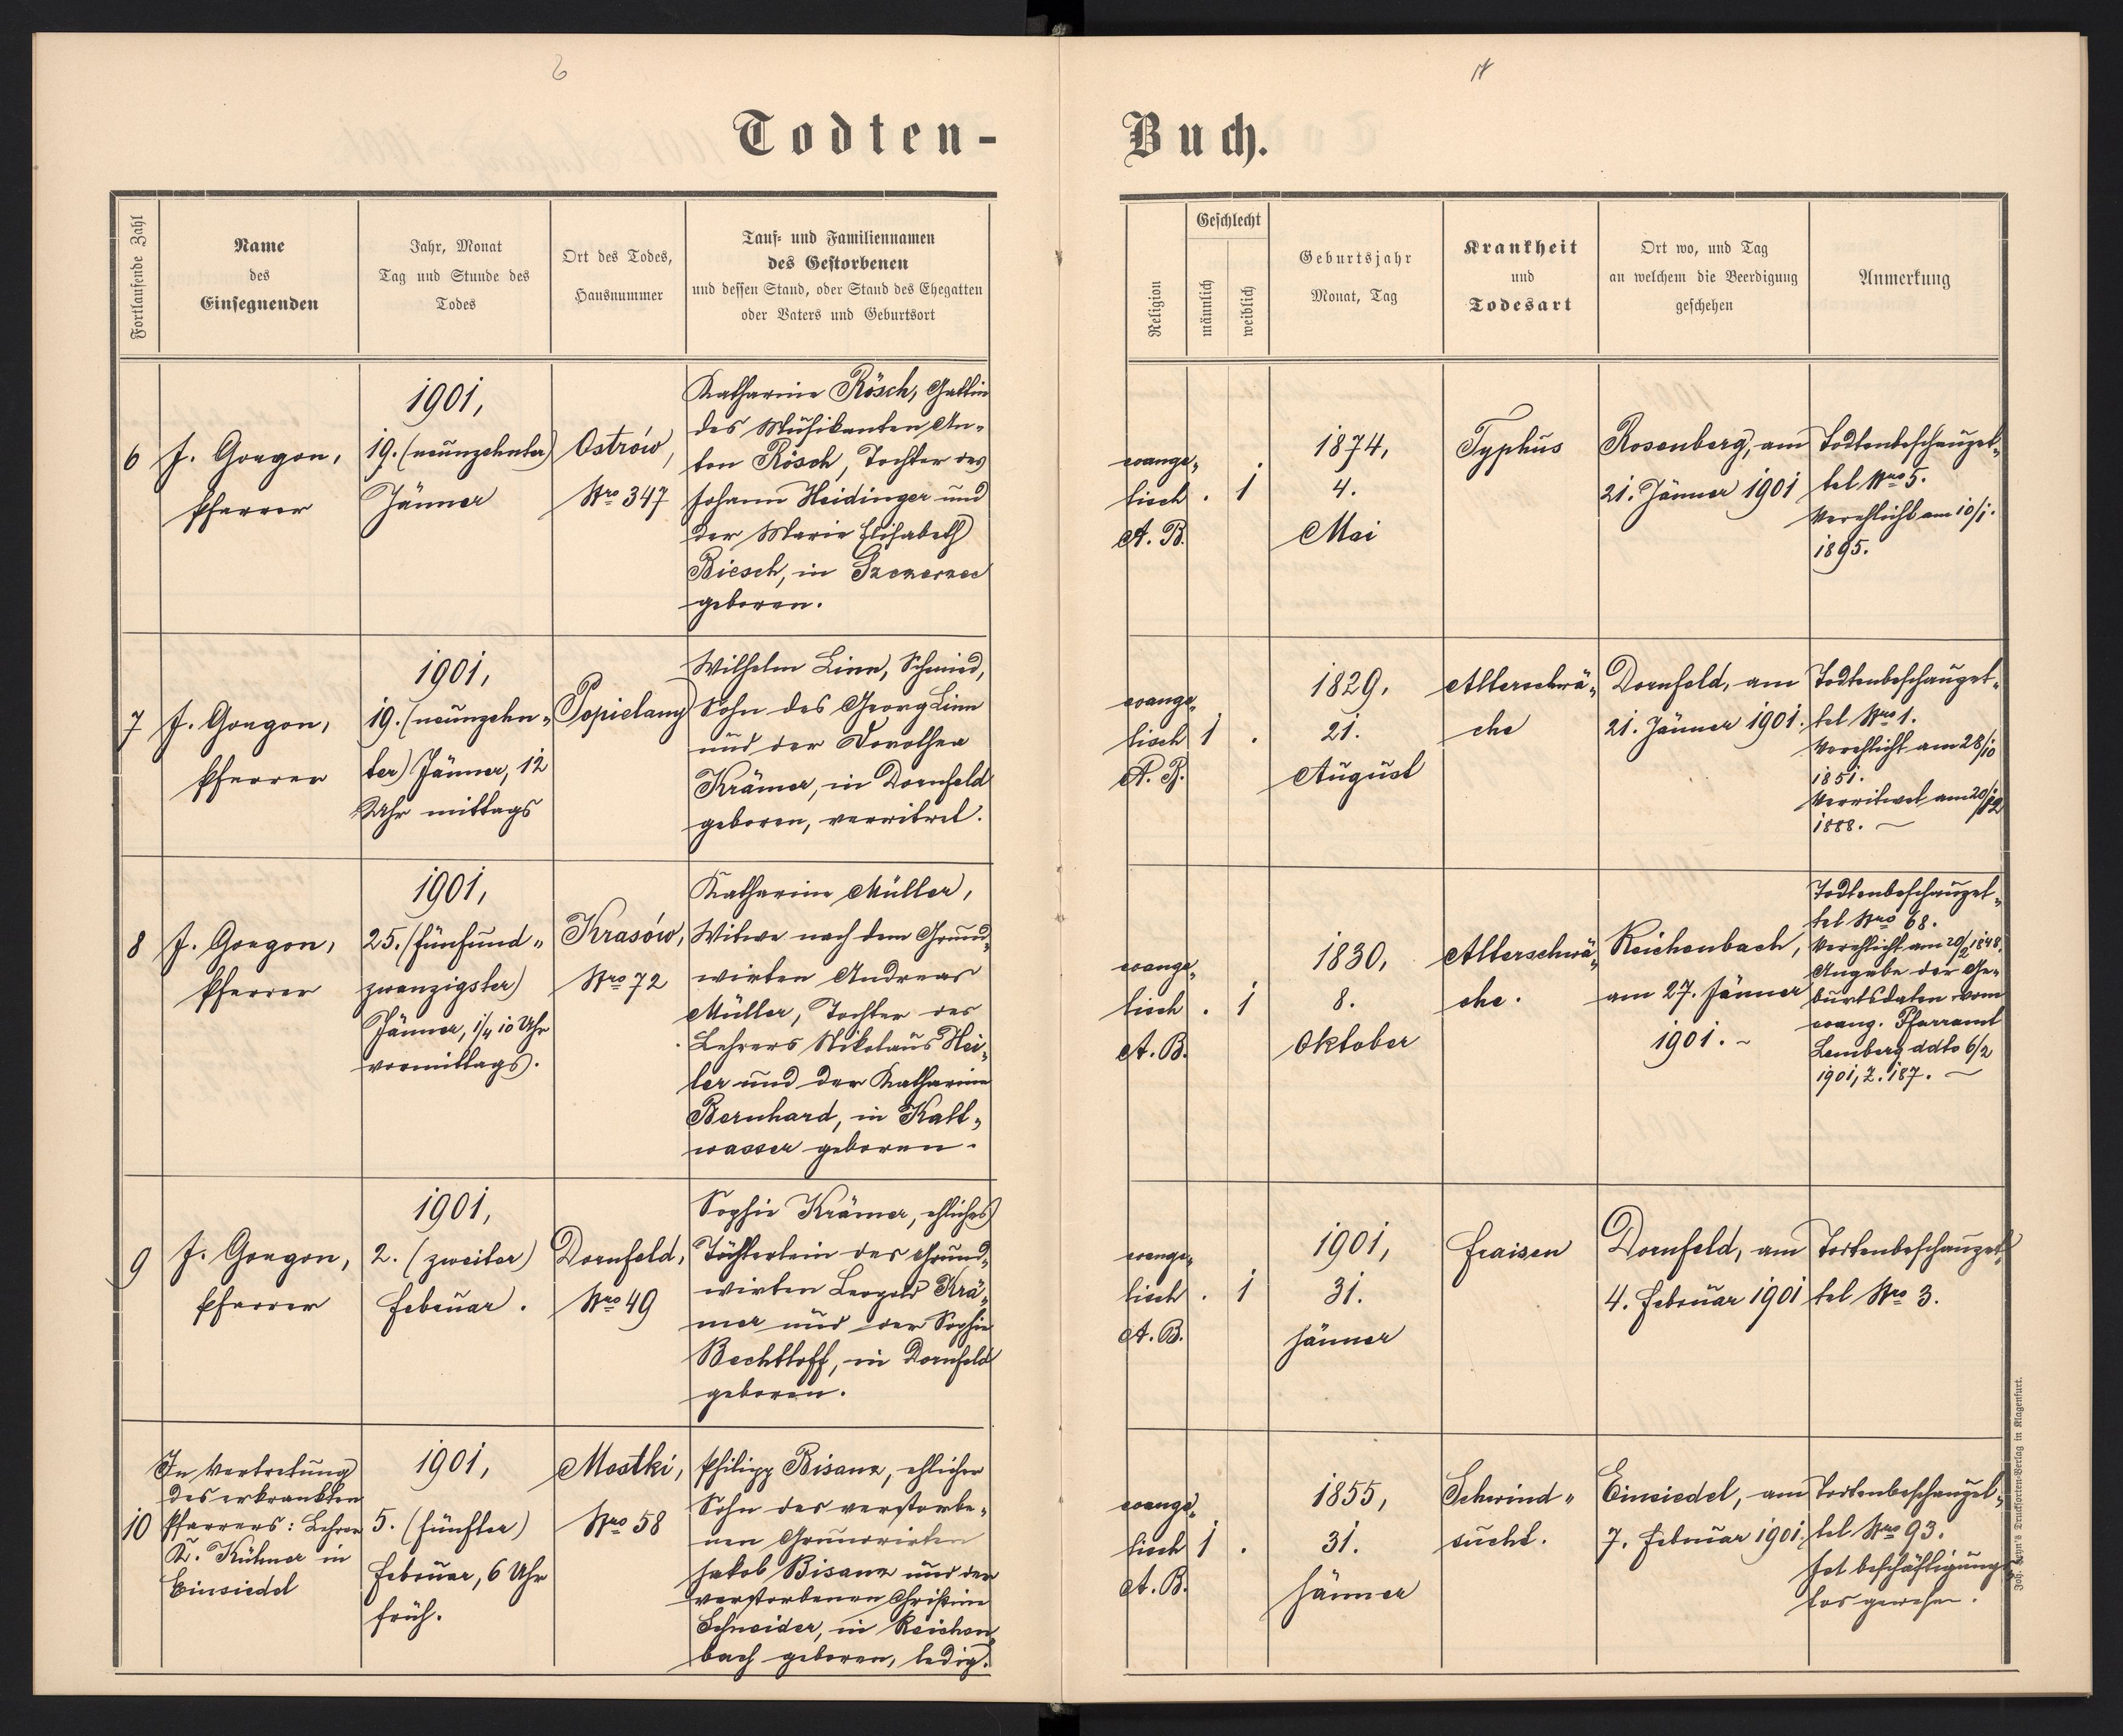 6
Todten-
Fortlaufende Zahl
Name
des
Einsegnenden
Jahr, Monat
Tag und Stunde des
Todes
Ort des Todes,
Hausnummer
Tauf- und Familiennamen
des Gestorbenen
und dessen Stand, oder Stand des Ehegatten
oder Vaters und Geburtsort
6
J. Gorgon,
Pfarrer
1901,
19. (neunzehnter)
Jänner
Ostrów,
Nro 347
Katharine Rösch, Gattin
des Musikanten An-
ton Rösch, Tochter des
Johann Heidinger und
der Marie Elisabeth
Biesch, in Szczerzec
geboren.
7
J. Gorgon,
Pfarrer
1901,
19. (neunzehn-
ter) Jänner, 12
Uhr mittags
Popielany
Wilhelm Linn, Schmied,
Sohn des Georg Linn
und der Dorothea
Krämer, in Dornfeld
geboren, verwitwet.
8
J. Gorgon,
Pfarrer
1901,
25. (fünfund-
zwanzigster)
Jänner, 1/4 10 Uhr
vormittags.
Krasów,
Nro 72
Katharine Müller,
Witwe nach dem Grund-
wirten Andreas
Müller, Tochter des
Lehrers Nikolaus Hei-
ler und der Katharine
Bernhard, in Kalt-
wasser geboren.
9
J. Gorgon,
Pfarrer
1901,
2. (zweiter)
Februar.
Dornfeld,
Nro 49
Sophie Krämer, ehliches
Töchterlein des Grund-
wirten Leopold Krä-
mer und der Sophie
Bechtloff, in Dornfeld
geboren.
10
In Vertretung
des erkrankten
Pfarrers: Lehrer
K. Kühner in
Einsiedel
1901,
5. (fünfter)
Februar, 6 Uhr
früh.
Mostki,
Nro 58
Philipp Bisanz, ehlicher
Sohn des verstorbe-
nen Grundwirten
Jakob Bisanz und der
verstorbenen Christine
Schneider, in Reichen-
bach geboren, ledig.
Buch.
Religion
Geschlecht
männlich
weiblich
Geburtsjahr
Monat, Tag
Krankheit
und
Todesart
Ort wo, und Tag
an welchem die Beerdigung
geschehen
Anmerkung
evange-
lisch
A. B.
.
1
1874,
4.
Mai
Typhus
Rosenberg, am
21. Jänner 1901
Todtenbeschauzet-
tel Nro 5.
Verehlicht am 10/1.
1895.
evange-
lisch
A. B.
1
.
1829,
21.
August
Alterschwä-
che
Dornfeld, am
21. Jänner 1901.
Todtenbeschauzet-
tel Nro 1.
Verehlicht am 28/10
1851.
Verwitwet am 20/12
1888.
evange-
lisch
A. B.
.
1
1830,
8.
Oktober
Alterschwä-
che.
Reichenbach,
am 27. Jänner
1901.
Todtenbeschauzet-
tel Nro 68.
Verehlicht am 20/2 1848.
Angabe der Ge-
burtsdaten vom
evang. Pfarramt
Lemberg ddto 6/2
1901, Z. 187.
evange-
lisch
A. B.
.
1
1901,
31.
Jänner
Fraisen
Dornfeld, am
4. Februar 1901
Todtenbeschauzet-
tel Nro 3.
evange-
lisch
A. B.
1
.
1855,
31.
Jänner
Schwind-
sucht.
Einsiedel, am
7. Februar 1901.
Todtenbeschauzet-
tel Nro 93.
Ist beschäftigungs-
los gewesen.
Joh. Leon's Drucksorten-Verlag in Klagenfurt.